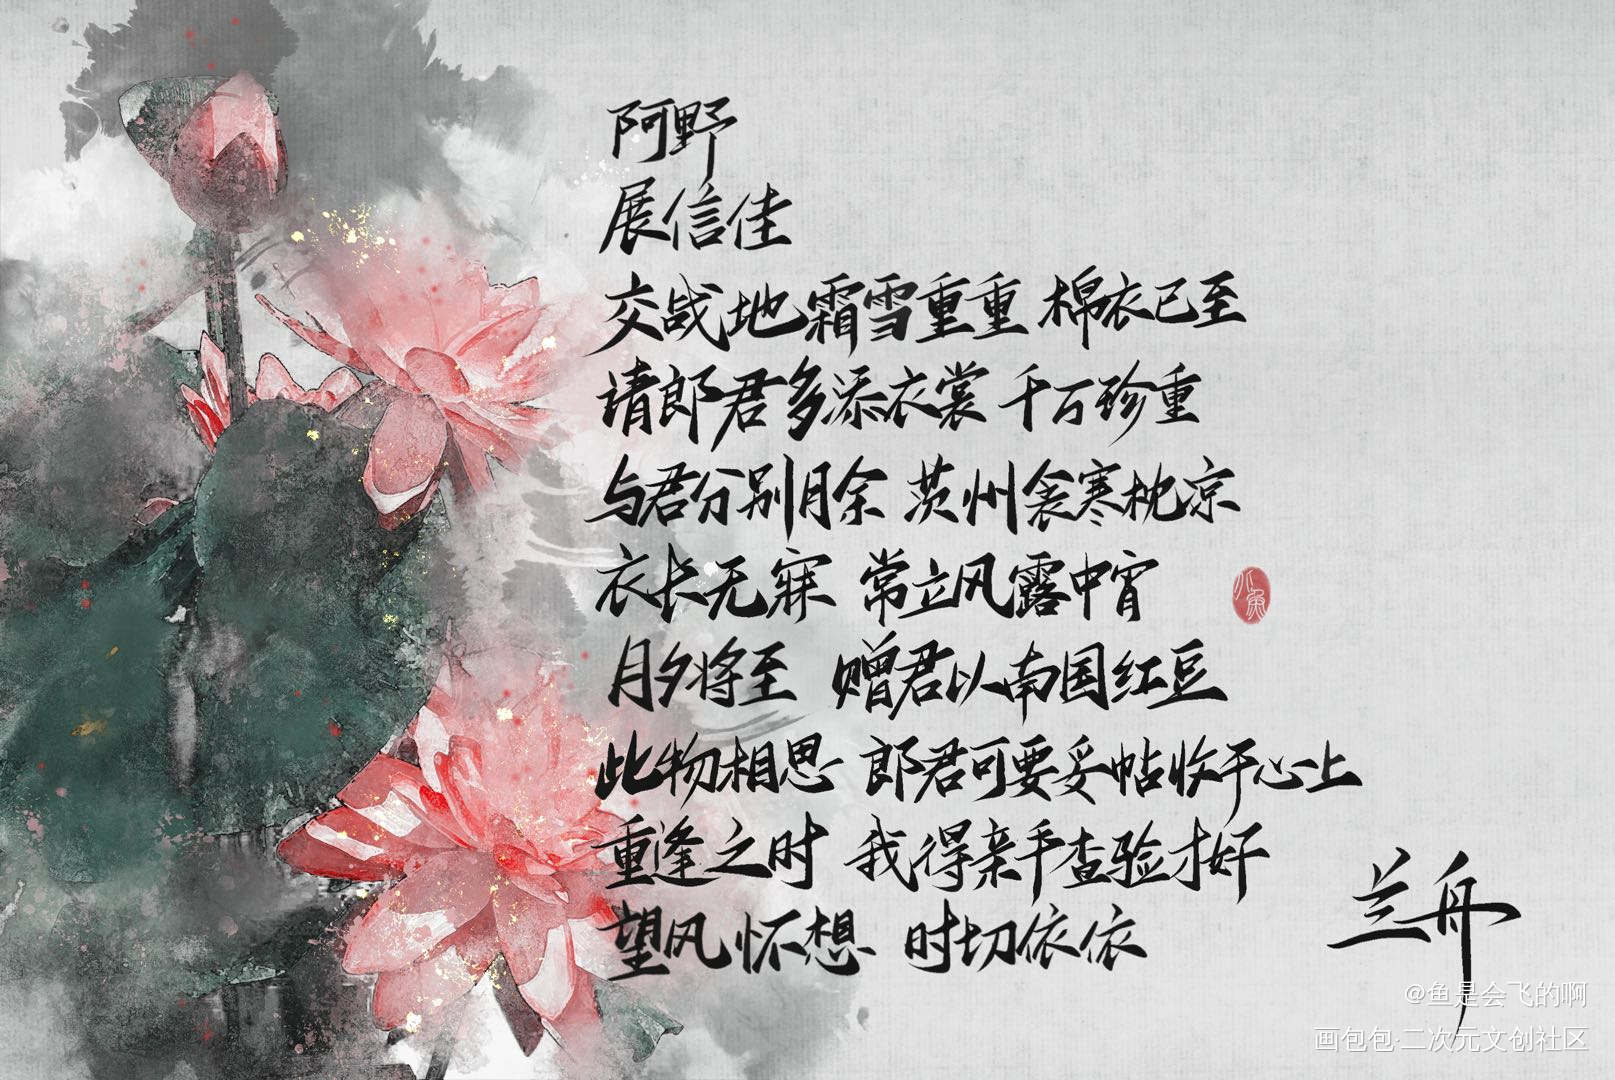 阿野
展信佳
交战地霜雪重重 棉衣已至
请郎君多添衣裳 千万珍重
与君分别月余 茨州衾寒枕凉
衣长无寐 常立风露中宵
月夕将至 赠君以南国红豆
此物相思 郎君可要妥帖收于心上
重逢之时 我得亲手查验才好
望风怀想 时切依依
兰舟
@鱼是会飞的啊
画包包·二次元文创社区